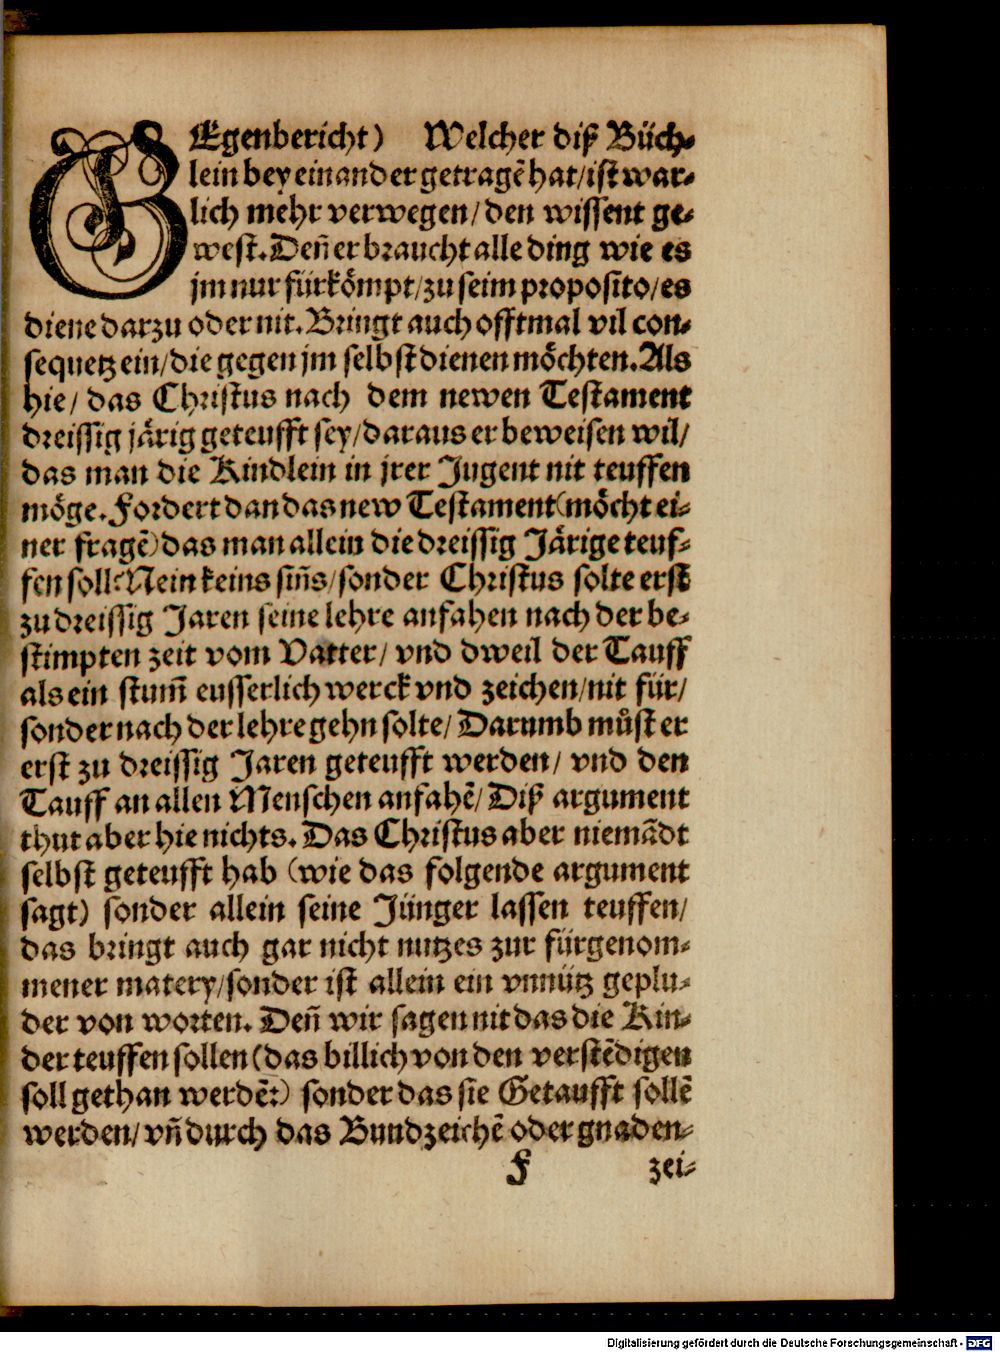 GEgenbericht) Welcher diß Büch⸗
lein bey einander getragẽ hat/ ist war⸗
lich mehr verwegen/ den wissent ge⸗
west. Deñ er braucht alle ding wie es
jm nur fürkömpt/ zu seim proposito/ es
diene darzu oder nit. Bringt auch offtmal vil con⸗
sequetz ein/ die gegen jm selbst dienen möchten. Als
hie/ das Christus nach dem newen Testament
dreissig järig geteufft sey/ daraus er beweisen wil/
das man die Kindlein in jrer Jugent nit teuffen
möge. Fordert dan das new Testament (möcht ei⸗
ner fragẽ) das man allein die dreissig Järige teuf⸗
fen soll? Nein keins siñs/ sonder Christus solte erst
zu dreissig Jaren seine lehre anfahen nach der be⸗
stimpten zeit vom Vatter/ vnd dweil der Tauff
als ein stum̃ eusserlich werck vnd zeichen/ nit für/
sonder nach der lehre gehn solte/ Darumb můst er
erst zu dreissig Jaren geteufft werden/ vnd den
Tauff an allen Menschen anfahẽ/ Diß argument
thut aber hie nichts. Das Christus aber niemãdt
selbst geteufft hab (wie das folgende argument
sagt) sonder allein seine Jünger lassen teuffen/
das bringt auch gar nicht nutzes zur fürgenom⸗
mener matery/ sonder ist allein ein vnnütz geplu⸗
der von worten. Deñ wir sagen nit das die Kin⸗
der teuffen sollen (das billich von den verstẽdigen
soll gethan werdẽ:) sonder das sie Getaufft sollẽ
werden/ vñ durch das Bundzeichẽ oder gnaden⸗
F zei⸗
Digitalisierung gefördert durch die Deutsche Forschungsgemeinschaft - DFG